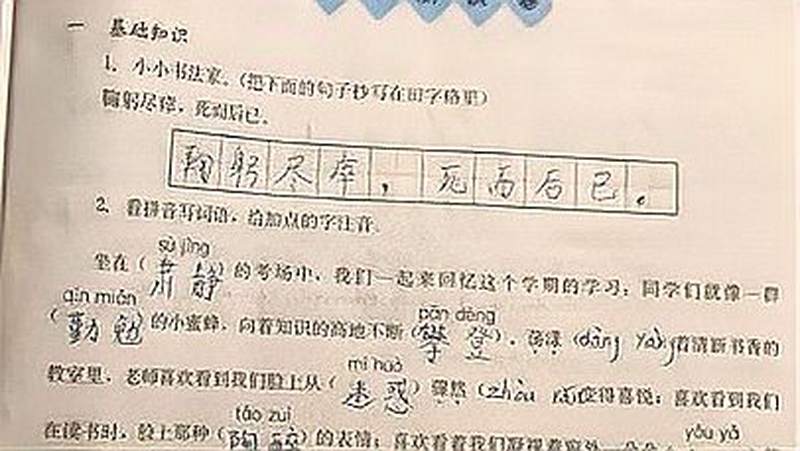 一 基础知识
1. 小小书法家。(把下面的句子抄写在田字格里)
鞠躬尽瘁,死而后已。
鞠躬尽瘁,死而后已。
2. 看拼音写词语,给加点的字注音。
sù jìng
坐在(肃静)的考场中,我们一起来回忆这个学期的学习:同学们就像一群
qín miǎn pān dēng
(勤勉)的小蜜蜂,向着知识的高地不断(攀登)。荡漾(dàng yàng)着清新书香的
mí huò
教室里,老师喜欢看到我们脸上从(迷惑)骤然(zhòu)变得喜悦;喜欢看到我们
táo zuì yōu yǎ
在读书时,脸上那种(陶醉)的表情;喜欢看着我们凝视着窗外一朵朵